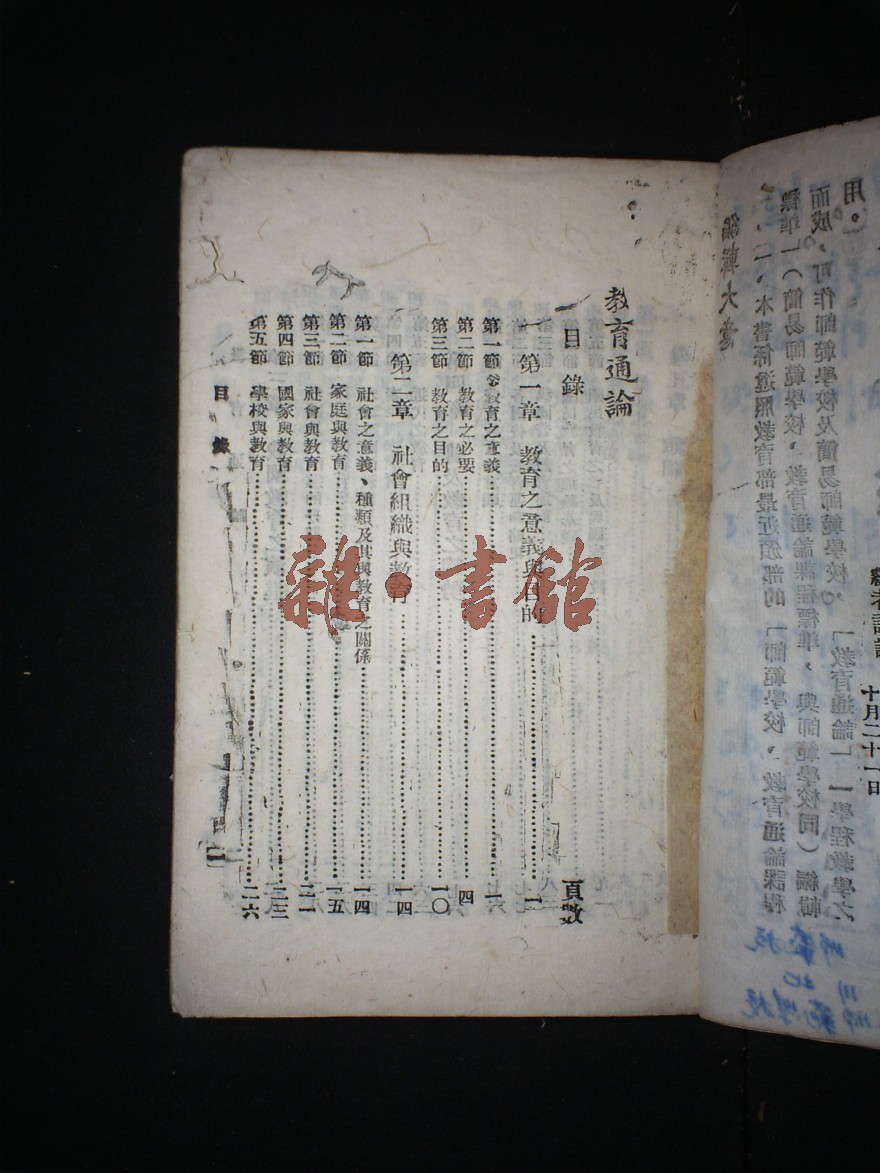 編輯大意
一、本書係遵照教育部最近頒部的「師範學校、教育通論課程
標準」(簡易師範學校、教育通論課程標準,與師範學校同)編輯
而成,可作師範學校及簡易師範學校,「教育通論」一學程教學之
用。
十月二十一日
教育通論
目錄 頁數
第一章 教育之意義與目的……一
第一節 教育之意義……一
第二節 教育之必要……四
第三節 教育之目的……一〇
第二章 社會組織與教育……一四
第一節 社會之意義、種類及其與教育之關係……一四
第二節 家庭與教育……一五
第三節 社會與教育……二一
第四節 國家與教育……二三
第五節 學校與教育……二六
目錄
一
雜·書館